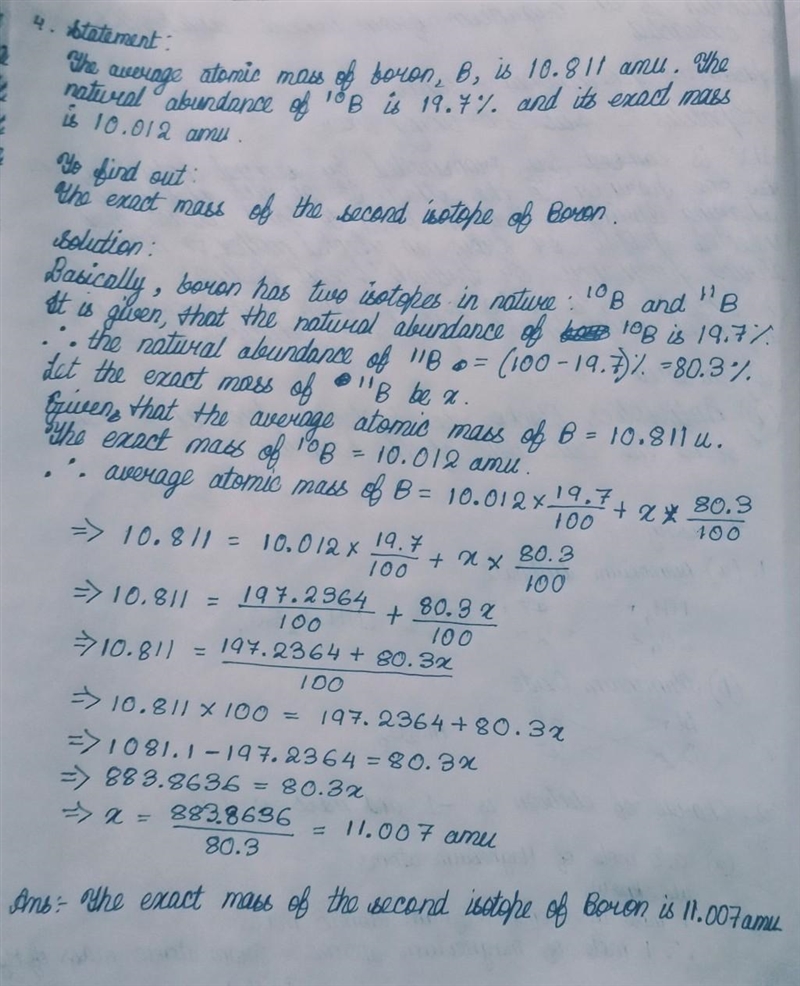 4. Statement:
The average atomic mass of boron, B, is 10.811 amu. The
natural abundance of ¹⁰B is 19.7% and its exact mass
is 10.012 amu.
To find out:
The exact mass of the second isotope of Boron.
Solution:
Basically, boron has two isotopes in nature: ¹⁰B and ¹¹B
It is given, that the natural abundance of ¹⁰B is 19.7%.
∴ the natural abundance of ¹¹B = (100 - 19.7)% = 80.3%.
Let the exact mass of ¹¹B be x.
Given, that the average atomic mass of B = 10.811 u.
The exact mass of ¹⁰B = 10.012 amu.
∴ average atomic mass of B = 10.012 × 19.7/100 + x × 80.3/100
=> 10.811 = 10.012 × 19.7/100 + x × 80.3/100
=> 10.811 = 197.2364/100 + 80.3x/100
=> 10.811 = (197.2364 + 80.3x)/100
=> 10.811 × 100 = 197.2364 + 80.3x
=> 1081.1 - 197.2364 = 80.3x
=> 883.8636 = 80.3x
=> x = 883.8636/80.3 = 11.007 amu
Ans:- The exact mass of the second isotope of Boron is 11.007 amu